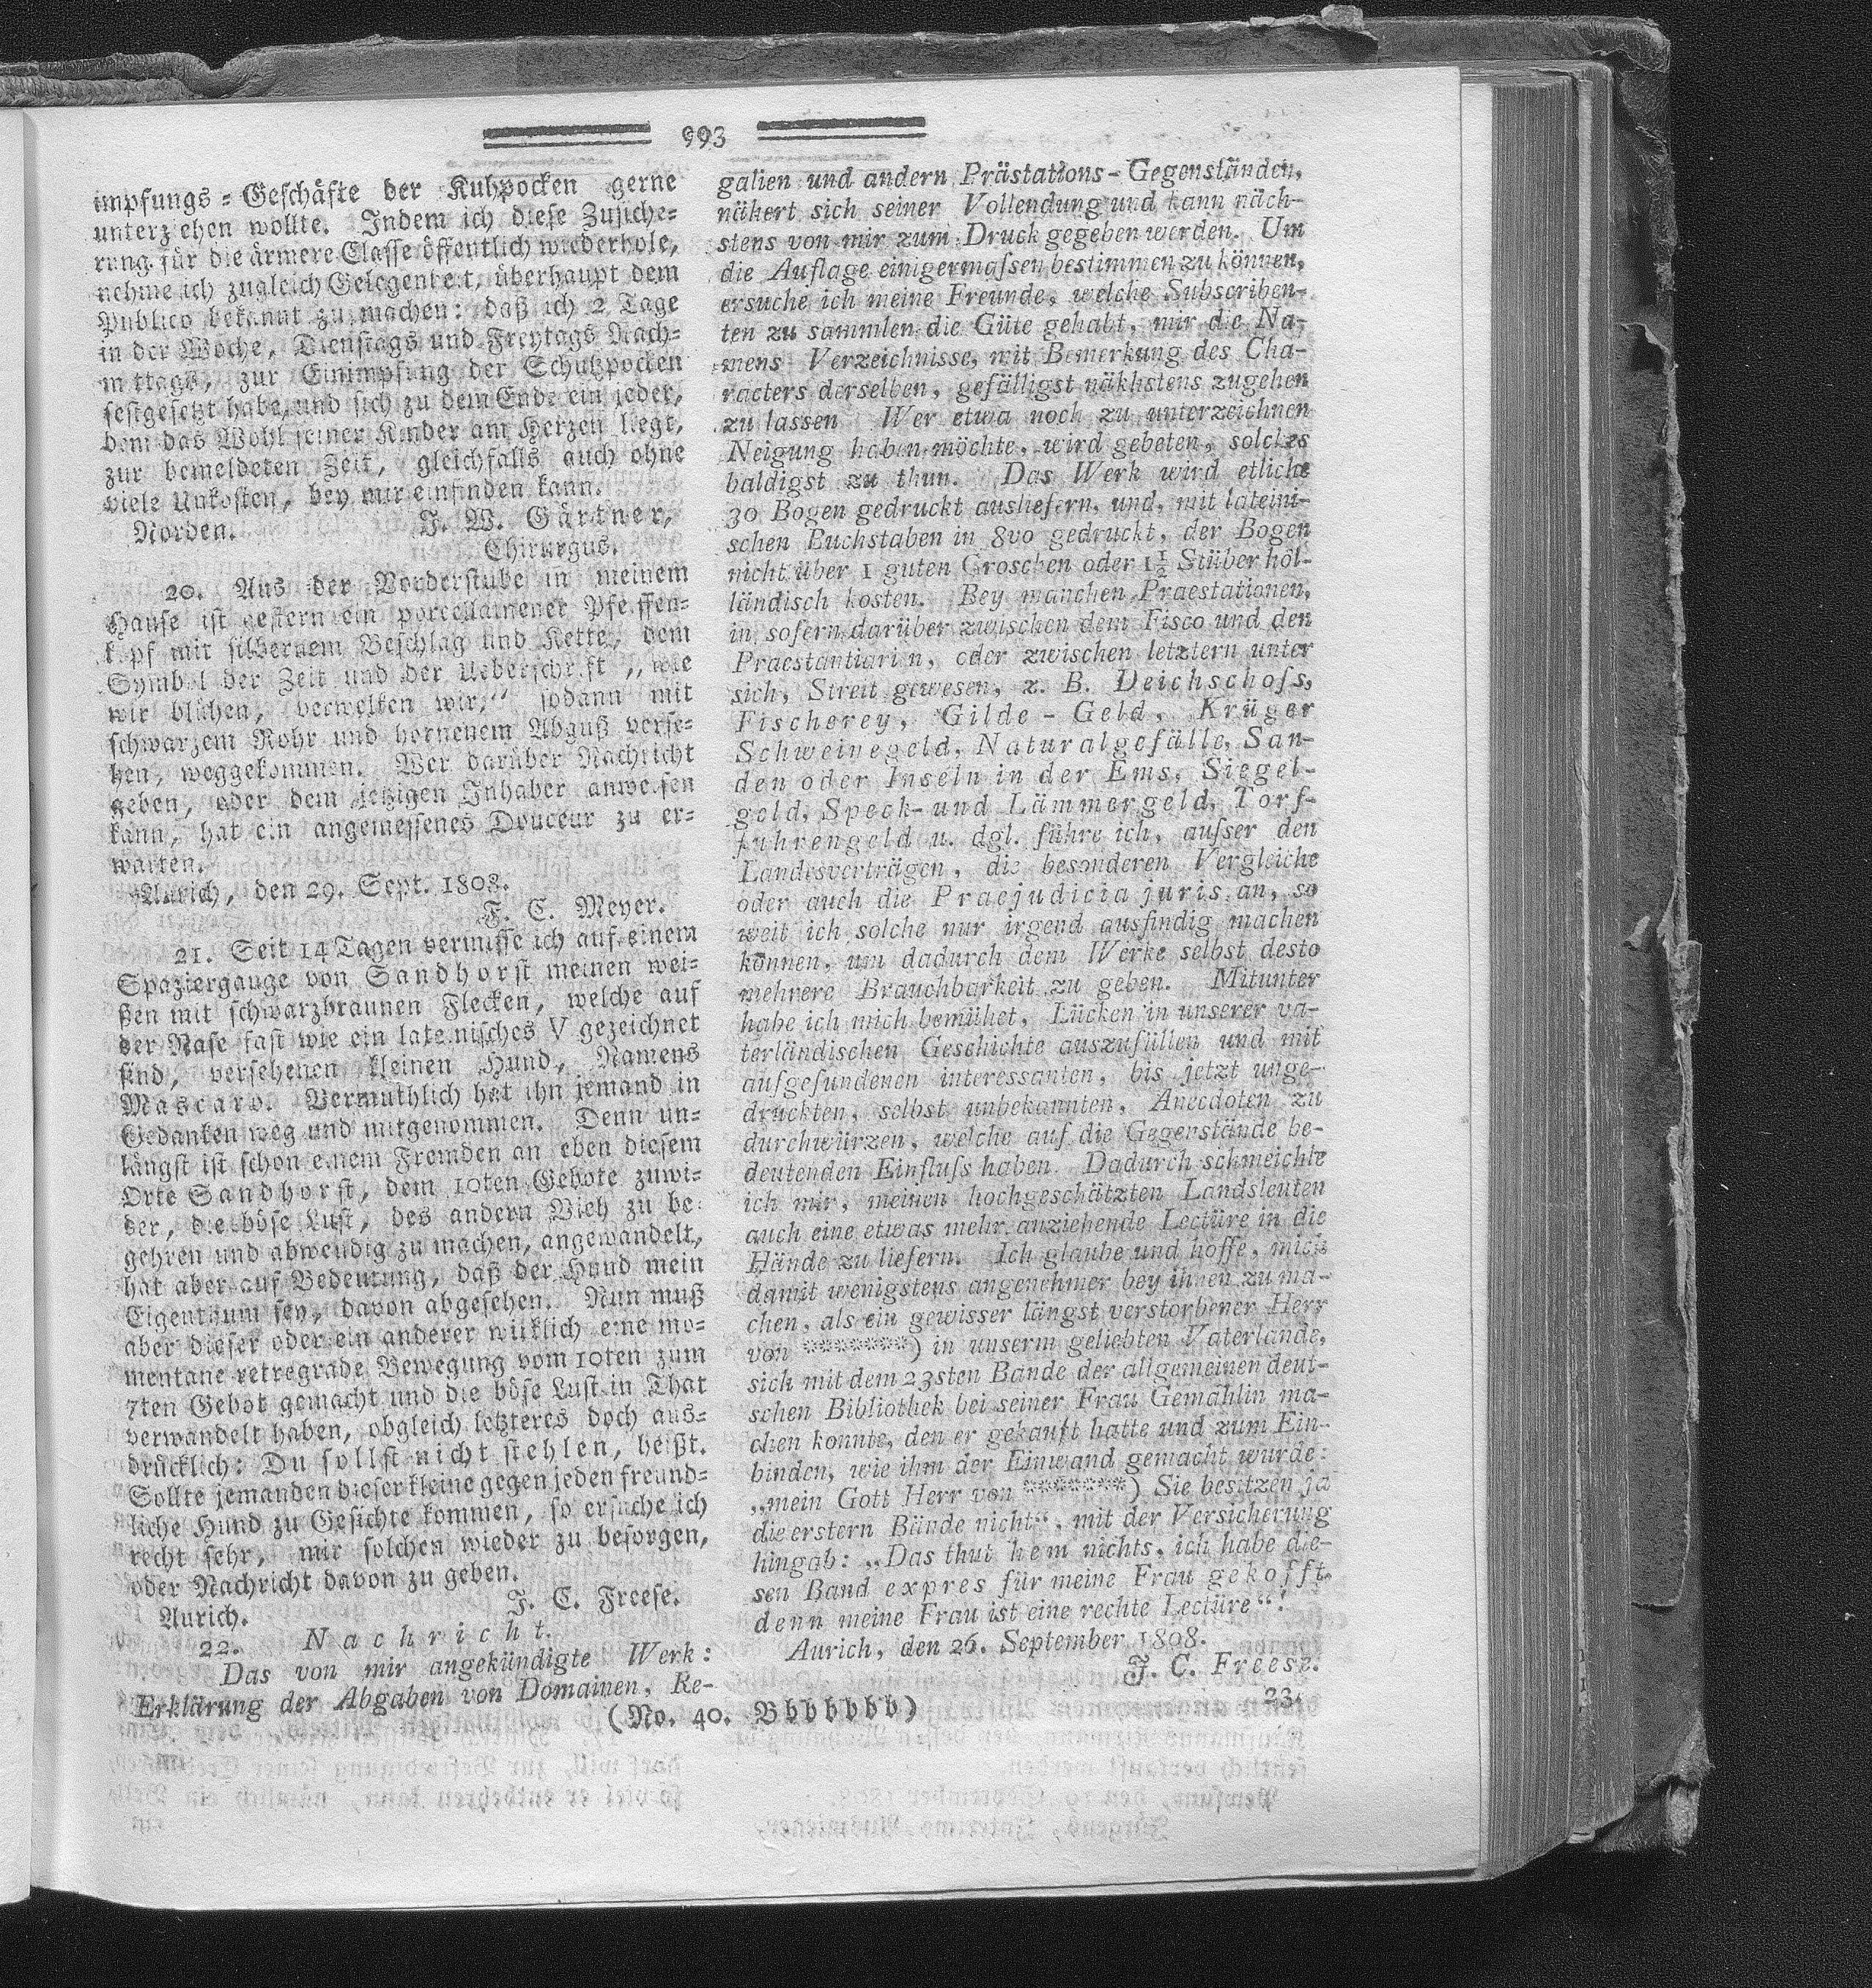 993
impfungs = Geschäfte der Kuhpocken gerne
unterziehen wollte. Indem ich diese Zusiche=
rung für die ärmere Classe öffentlich wiederhole,
nehme ich zugleich Gelegenheit, überhaupt dem
Publico bekannt zu machen: daß ich 2 Tage
in der Woche, Dienstags und Freytags Nach=
mittags, zur Einimpfung der Schutzpocken
festgesetzt habe, und sich zu dem Ende ein jeder,
dem das Wohl seiner Kinder am Herzen liegt,
zur bemeldeten Zeit, gleichfalls auch ohne
viele Unkosten, bey mir einfinden kann.
Norden. J. W. Gärtner,
Chirurgus.
20. Aus der Vorderstube in meinem
Hause ist gestern ein porcellainener Pfeiffen=
kopf mit silbernem Beschlag und Kette, dem
Symbol der Zeit und der Ueberschrift „wie
wir blühen, verwelken wir," sodann mit
schwarzem Rohr und hornenem Abguß verse=
hen, weggekommen. Wer darüber Nachricht
geben, oder dem jetzigen Inhaber anweisen
kann, hat ein angemessenes Douceur zu er=
warten.
Aurich, den 29. Sept. 1808.
F. C. Meyer.
21. Seit 14 Tagen vermisse ich auf einem
Spaziergange von Sandhorst meinen wei=
ßen mit schwarzbraunen Flecken, welche auf
der Nase fast wie ein lateinisches V gezeichnet
sind, versehenen kleinen Hund, Namens
Mascaro. Vermuthlich hat ihn jemand in
Gedanken weg und mitgenommen. Denn un=
längst ist schon einem Fremden an eben diesem
Orte Sandhorst, dem 10ten Gebote zuwi=
der, die böse Lust, des andern Vieh zu be=
gehren und abwendig zu machen, angewandelt,
hat aber auf Bedeutung, daß der Hund mein
Eigenthum sey, davon abgesehen. Nun muß
aber dieser oder ein anderer wirklich eine mo=
mentane retregrade Bewegung vom 10ten zum
7ten Gebot gemacht und die böse Lust in That
verwandelt haben, obgleich letzteres doch aus=
drücklich: Du sollst nicht stehlen, heißt.
Sollte jemanden dieser kleine gegen jeden freund=
liche Hund zu Gesichte kommen, so ersuche ich
recht sehr, mir solchen wieder zu besorgen,
oder Nachricht davon zu geben.
Aurich. J. C. Freese.
22. Nachricht.
Das von mir angekündigte Werk:
Erklärung der Abgaben von Domainen, Re-
galien und andern Prästations-Gegenständen,
nähert sich seiner Vollendung und kann näch-
stens von mir zum Druck gegeben werden. Um
die Auflage einigermassen bestimmen zu können,
ersuche ich meine Freunde, welche Subscriben-
ten zu sammlen die Güte gehabt, mir die Na-
mens Verzeichnisse, mit Bemerkung des Cha-
racters derselben, gefälligst näkhstens zugehen
zu lassen Wer etwa noch zu unterzeichnen
Neigung haben möchte, wird gebeten, solches
baldigst zu thun. Das Werk wird etliche
30 Bogen gedruckt ausliefern, und, mit lateini-
schen Buchstaben in 8vo gedruckt, der Bogen
nicht über 1 guten Groschen oder 1½ Stüber höl-
ländisch kosten. Bey manchen Praestationen,
in sofern darüber zwischen dem Fisco und den
Praestantiarien, oder zwischen letztern unter
sich, Streit gewesen, z. B. Deichschoss,
Fischerey, Gilde - Geld, Krüger
Schweinegeld, Naturalgefälle, San-
den oder Inseln in der Ems, Siegel-
geld, Speck- und Lämmergeld, Torf-
fuhrengeld u. dgl. führe ich, ausser den
Landesverträgen, die besonderen Vergleiche
oder auch die Praejudicia juris an, so
weit ich solche nur irgend ausfindig machen
können, um dadurch dem Werke selbst desto
mehrere Brauchbarkeit zu geben. Mitunter
habe ich mich bemühet, Lücken in unserer va-
terländischen Geschichte auszufüllen und mit
aufgefundenen interessanten, bis jetzt unge-
druckten, selbst unbekannten, Anecdoten zu
durchwürzen, welche auf die Gegenstände be-
deutenden Einfluss haben. Dadurch schmeichle
ich mir, meinen hochgeschätzten Landsleuten
auch eine etwas mehr anziehende Lectüre in die
Hände zu liefern. Ich glaube und hoffe, mich
damit wenigstens angenehmer bey ihnen zu ma-
chen, als ein gewisser längst verstorbener Herr
von *******) in unserm geliebten Vaterlande,
sich mit dem 23sten Bande der allgemeinen deut-
schen Bibliothek bei seiner Frau Gemahlin ma-
chen konnte, den er gekauft hatte und zum Ein-
binden, wie ihm der Einwand gemacht wurde:
„mein Gott Herr von *******) Sie besitzen ja
die erstern Bände nicht", mit der Versicherung
hingab: „Das thut hem nichts, ich habe die-
sen Band expres für meine Frau gekofft,
denn meine Frau ist eine rechte Lectüre"!
Aurich, den 26. September 1808.
J. C. Freese.
23.
(No. 40. Bbbbbbb)